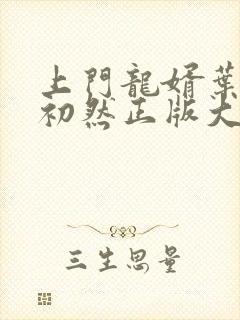 上門龍婿葉
初然正版大
三生思量